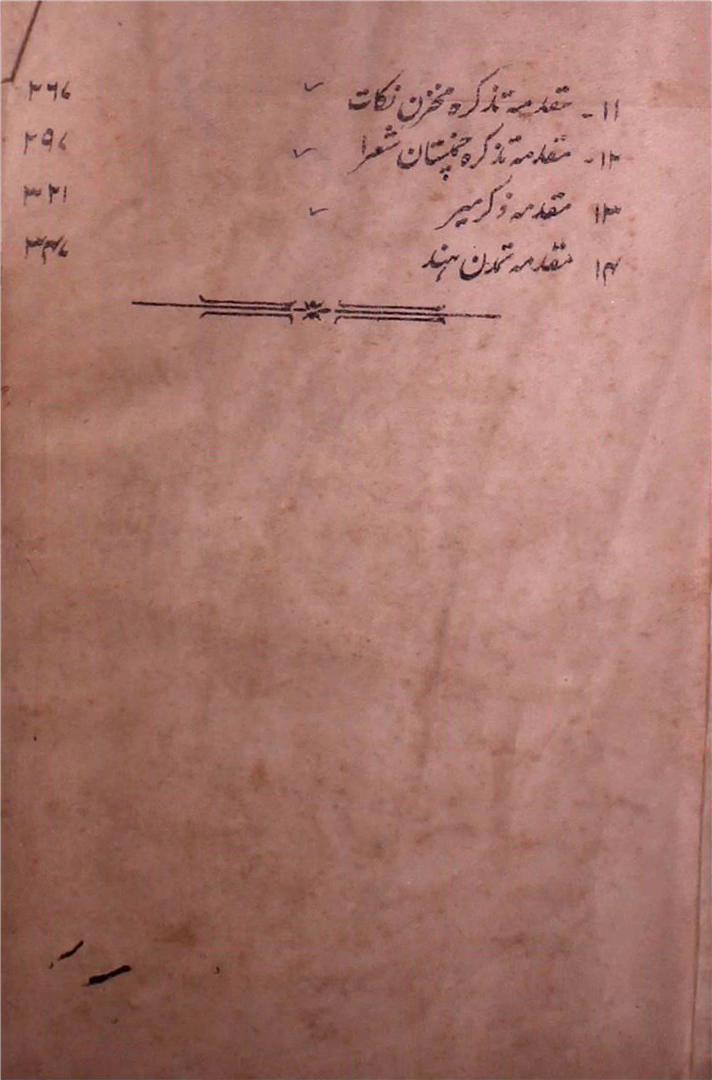 ۱۱ - مقدمہ تذکرہ مخزن نکات ۲۶۷
۱۲ - مقدمہ تذکرہ چمنستان شعرا ۲۹۷
۱۳ مقدمہ ذکر میر ۳۲۱
۱۴ مقدمہ تمدن ہند ۳۴۷